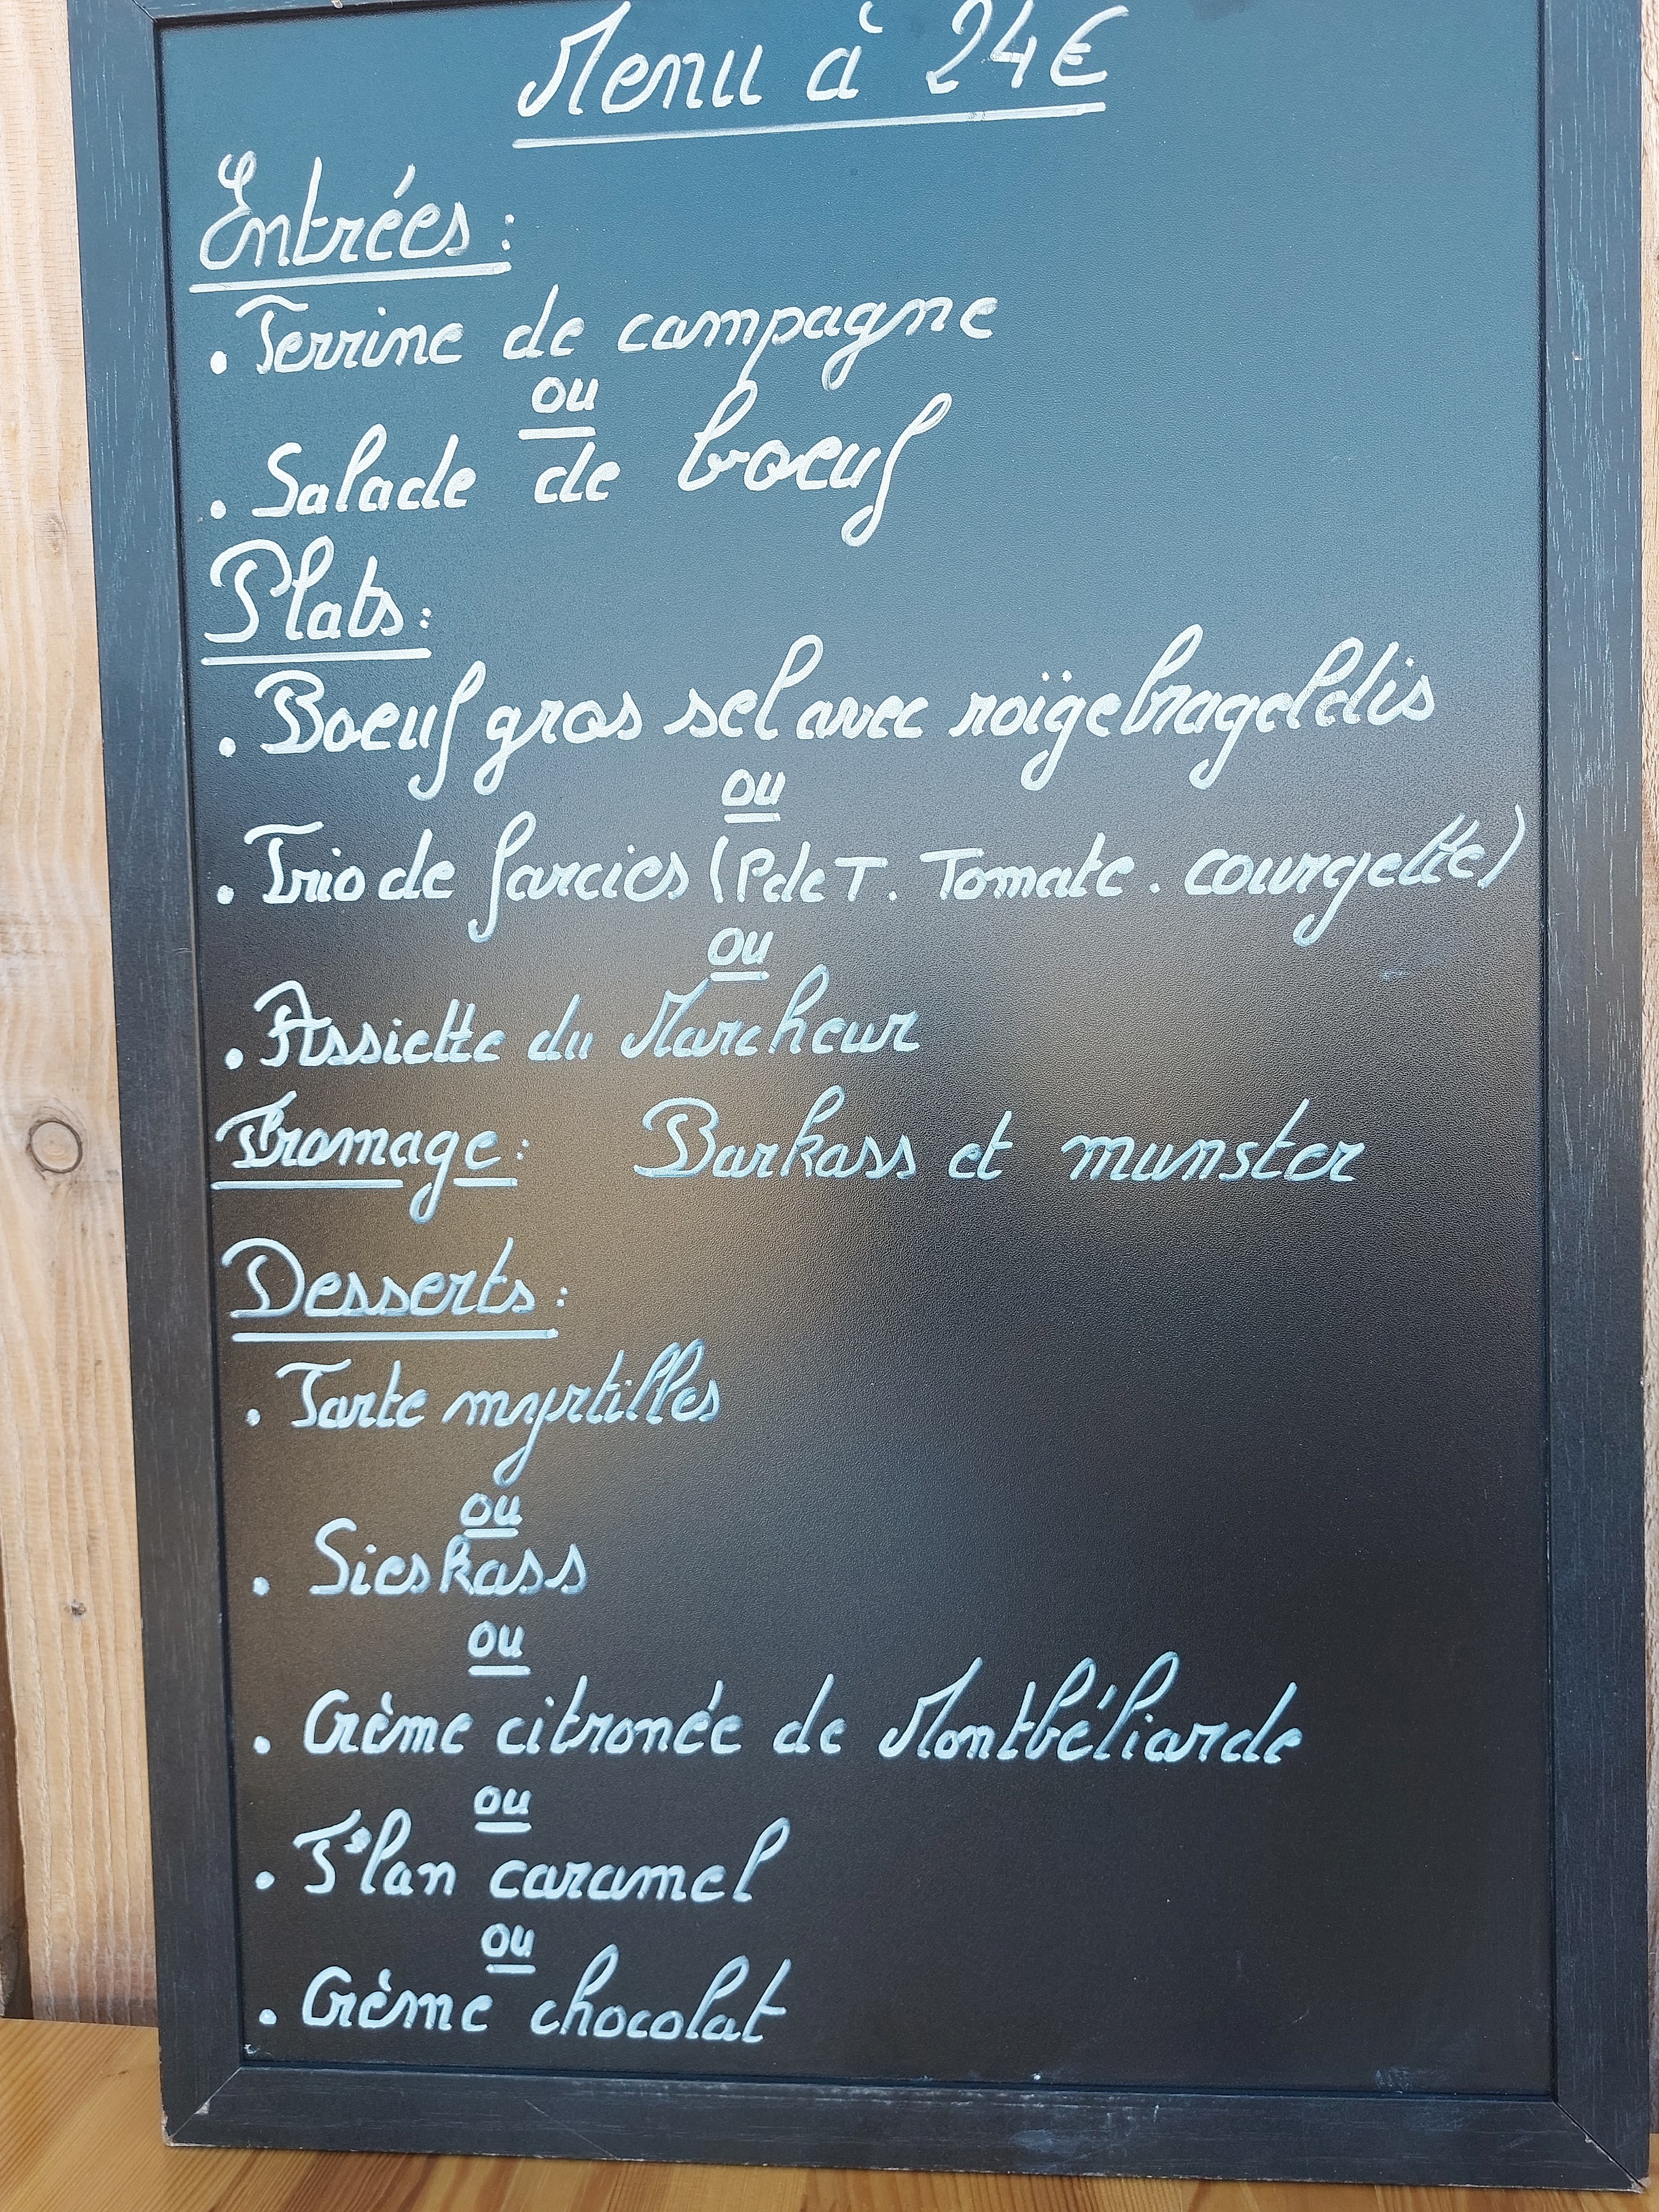 Menu à 24€
Entrées :
. Terrine de campagne
ou
. Salade de boeuf
Plats :
. Boeuf gros sel avec roïgebrageldis
ou
. Trio de farcies (P de T. Tomate. courgette)
ou
. Assiette du Marcheur
Fromage : Barkass et munster
Desserts :
. Tarte myrtilles
ou
. Sieskass
ou
. Crème citronée de Montbéliarde
ou
. Flan caramel
ou
. Crème chocolat